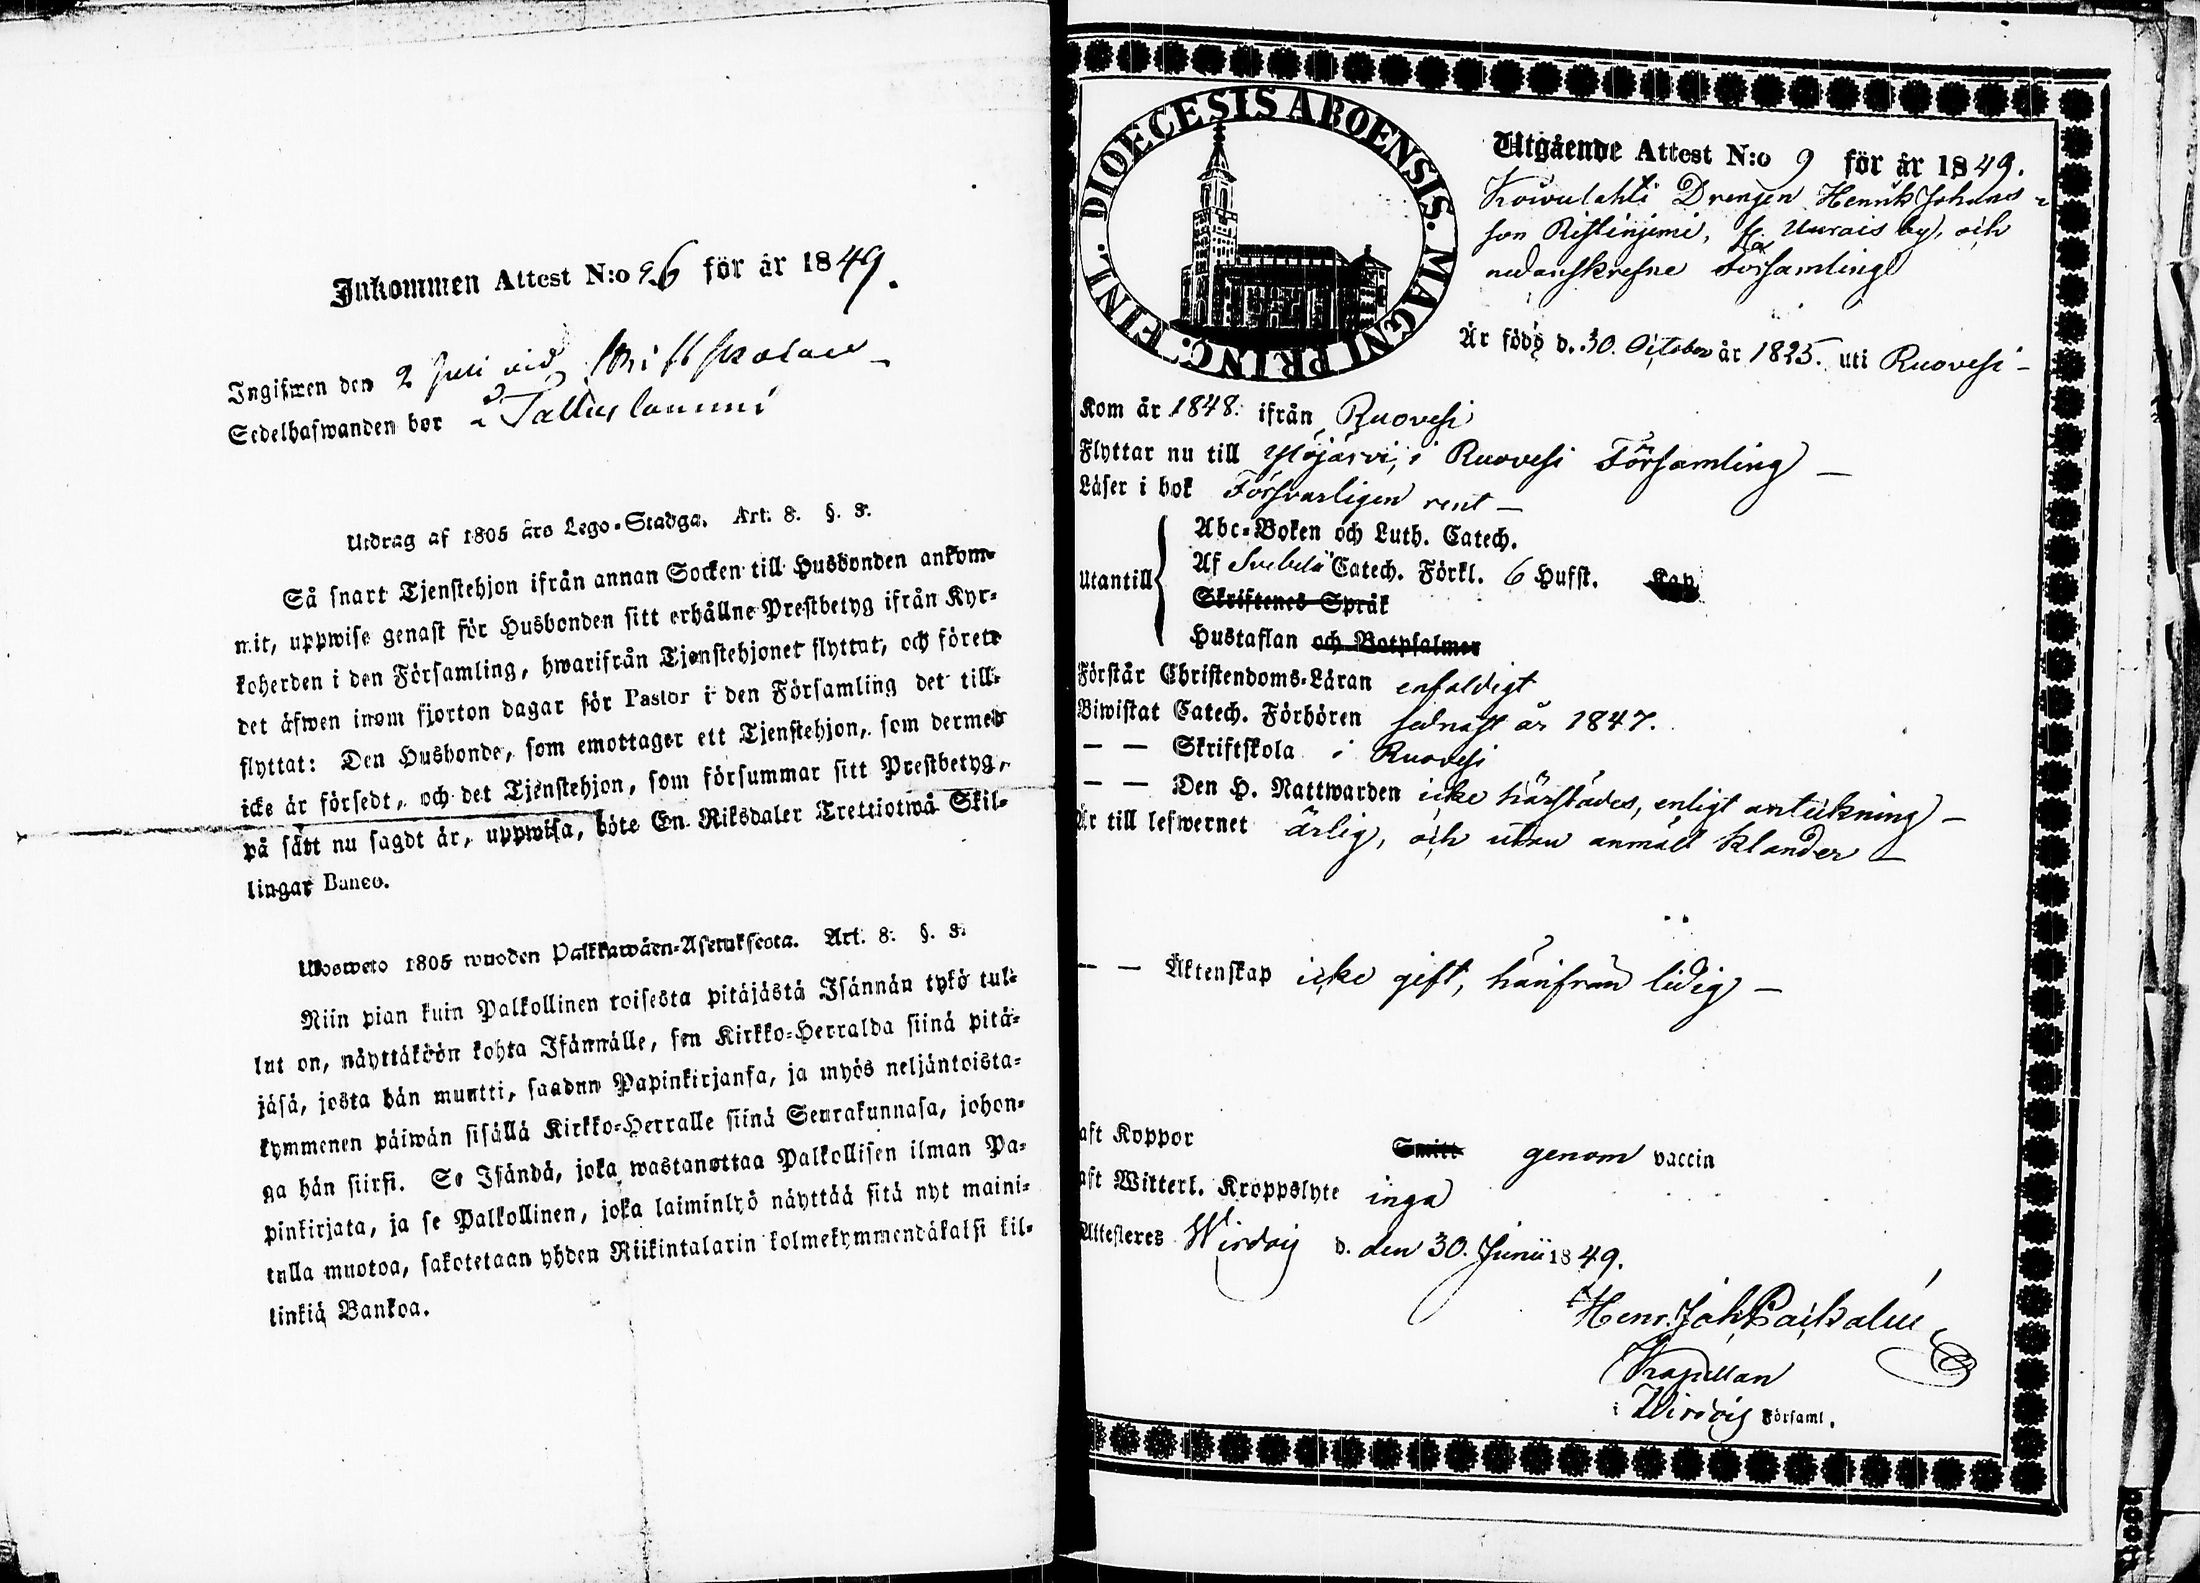 Inkommen Attest N:o 96 för år 1849.
Ingifwen den 2 Juli vid
Sedelhafwanden bor
Utdrag af 1805 års Lego-Stadga. Art. 8. §. 3.
Så snart Tjenstehjon ifrån annan Socken till Husbonden ankom-
mit, uppwise genast för Husbonden sitt erhållne Prestbetyg ifrån Kyr-
koherden i den Församling, hwarifrån Tjenstehjonet flyttat, och förete
det äfwen inom fjorton dagar för Pastor i den Församling det till-
flyttat: Den Husbonde, som emottager ett Tjenstehjon, som dermed
icke är försedt, och det Tjenstehjon, som försummar sitt Prestbetyg,
på sätt nu sagdt är, uppwisa, böte En Riksdaler Trettiotwå Skil-
lingar Banco.
Ulosweto 1805 wuoden Palkkawäen-Asetuksesta. Art. 8. §. 3.
Niin pian kuin Palkollinen toisesta pitäjästä Isännän tykö tul-
lut on, näyttäköön kohta Isännälle, sen Kirkko-Herralda siinä pitä-
jäsä, josta hän muutti, saadun Papinkirjansa, ja myös neljäntoista-
kymmenen päiwän sisällä Kirkko-Herralle siinä Seurakunnasa, johon-
ga hän siirsi. Se Isändä, joka wastanottaa Palkollisen ilman Pa-
pinkirjata, ja se Palkollinen, joka laiminlyö näyttää sitä nyt maini-
tulla muotoa, sakotetaan yhden Riikintalarin kolmekymmendäkaksi kil-
linkiä Bankoa.
DIOECESIS ABOENSIS. MAGNI PRINC. FINL.
Utgående Attest N:o 9 för år 1849.
Drengen Henrik Johans-
son Ristinjemi, fr. Uurais by, och
nedanskrefne Församling
Är född d. 30. October år 1825. uti Ruovesi -
Kom år 1848. ifrån Ruovesi
Flyttar nu till Ylöjärvi, i Ruovesi Församling -
Läser i bok Försvarligen rent -
Abc-Boken och Luth. Catech.
Utantill Af Svebelii Catech. Förkl. 6 Hufst. Kap.
Skriftenes Språk
Hustaflan och Botpsalmer
Förstår Christendoms-Läran enfaldigt
Biwistat Catech. Förhören sednast år 1847.
— — Skriftskola i Ruovesi
— — Den H. Nattwarden icke härstädes, enligt anteckning -
Är till lefwernet ärlig, och utan anmält klander -
— — Äktenskap icke gift, härifrån ledig -
aft Koppor Smitt genom vaccin
aft Witterl. Kroppslyte inga
Attesteres Wirdois d. den 30. Junii 1849.
Henr. Joh.
Kapellan
i Wirdois Församl.